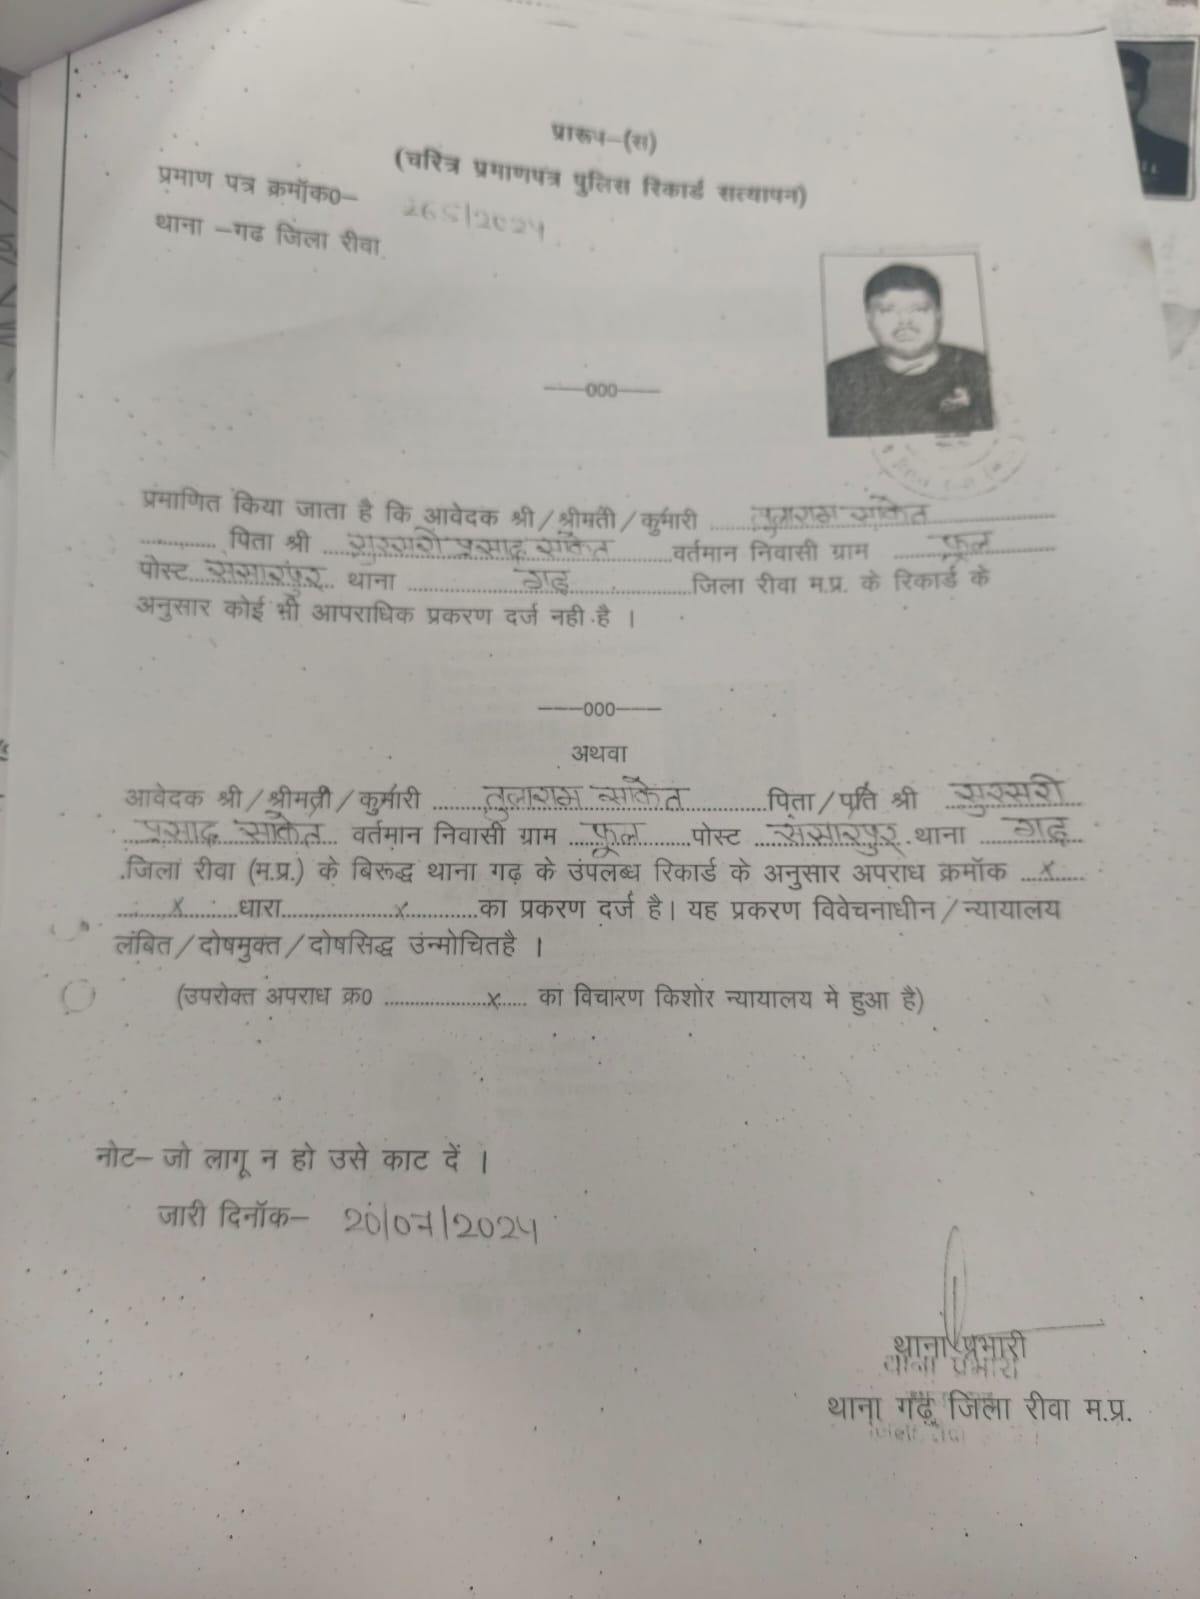 प्रारूप–(स)
(चरित्र प्रमाणपत्र पुलिस रिकार्ड सत्यापन)
प्रमाण पत्र क्रमॉक0– 265/2024
थाना –गढ जिला रीवा
——000——
प्रमाणित किया जाता है कि आवेदक श्री/श्रीमती/कुमारी तुलाराम साकेत
पिता श्री सुरसरी प्रसाद साकेत वर्तमान निवासी ग्राम फूल
पोस्ट संसारपुर थाना गढ़ जिला रीवा म.प्र. के रिकार्ड के
अनुसार कोई भी आपराधिक प्रकरण दर्ज नही है ।
——000——
अथवा
आवेदक श्री/श्रीमती/कुमारी तुलाराम साकेत पिता/पति श्री सुरसरी
प्रसाद साकेत वर्तमान निवासी ग्राम फूल पोस्ट संसारपुर थाना गढ़
जिला रीवा (म.प्र.) के बिरूद्ध थाना गढ़ के उपलब्ध रिकार्ड के अनुसार अपराध क्रमॉक x
x धारा x का प्रकरण दर्ज है। यह प्रकरण विवेचनाधीन/न्यायालय
लंबित/दोषमुक्त/दोषसिद्ध उंन्मोचितहै ।
(उपरोक्त अपराध क्र0 x का विचारण किशोर न्यायालय मे हुआ है)
नोट– जो लागू न हो उसे काट दें ।
जारी दिनॉक– 20/07/2024
थाना प्रभारी
थाना प्रभारी
थाना गढ़ जिला रीवा म.प्र.